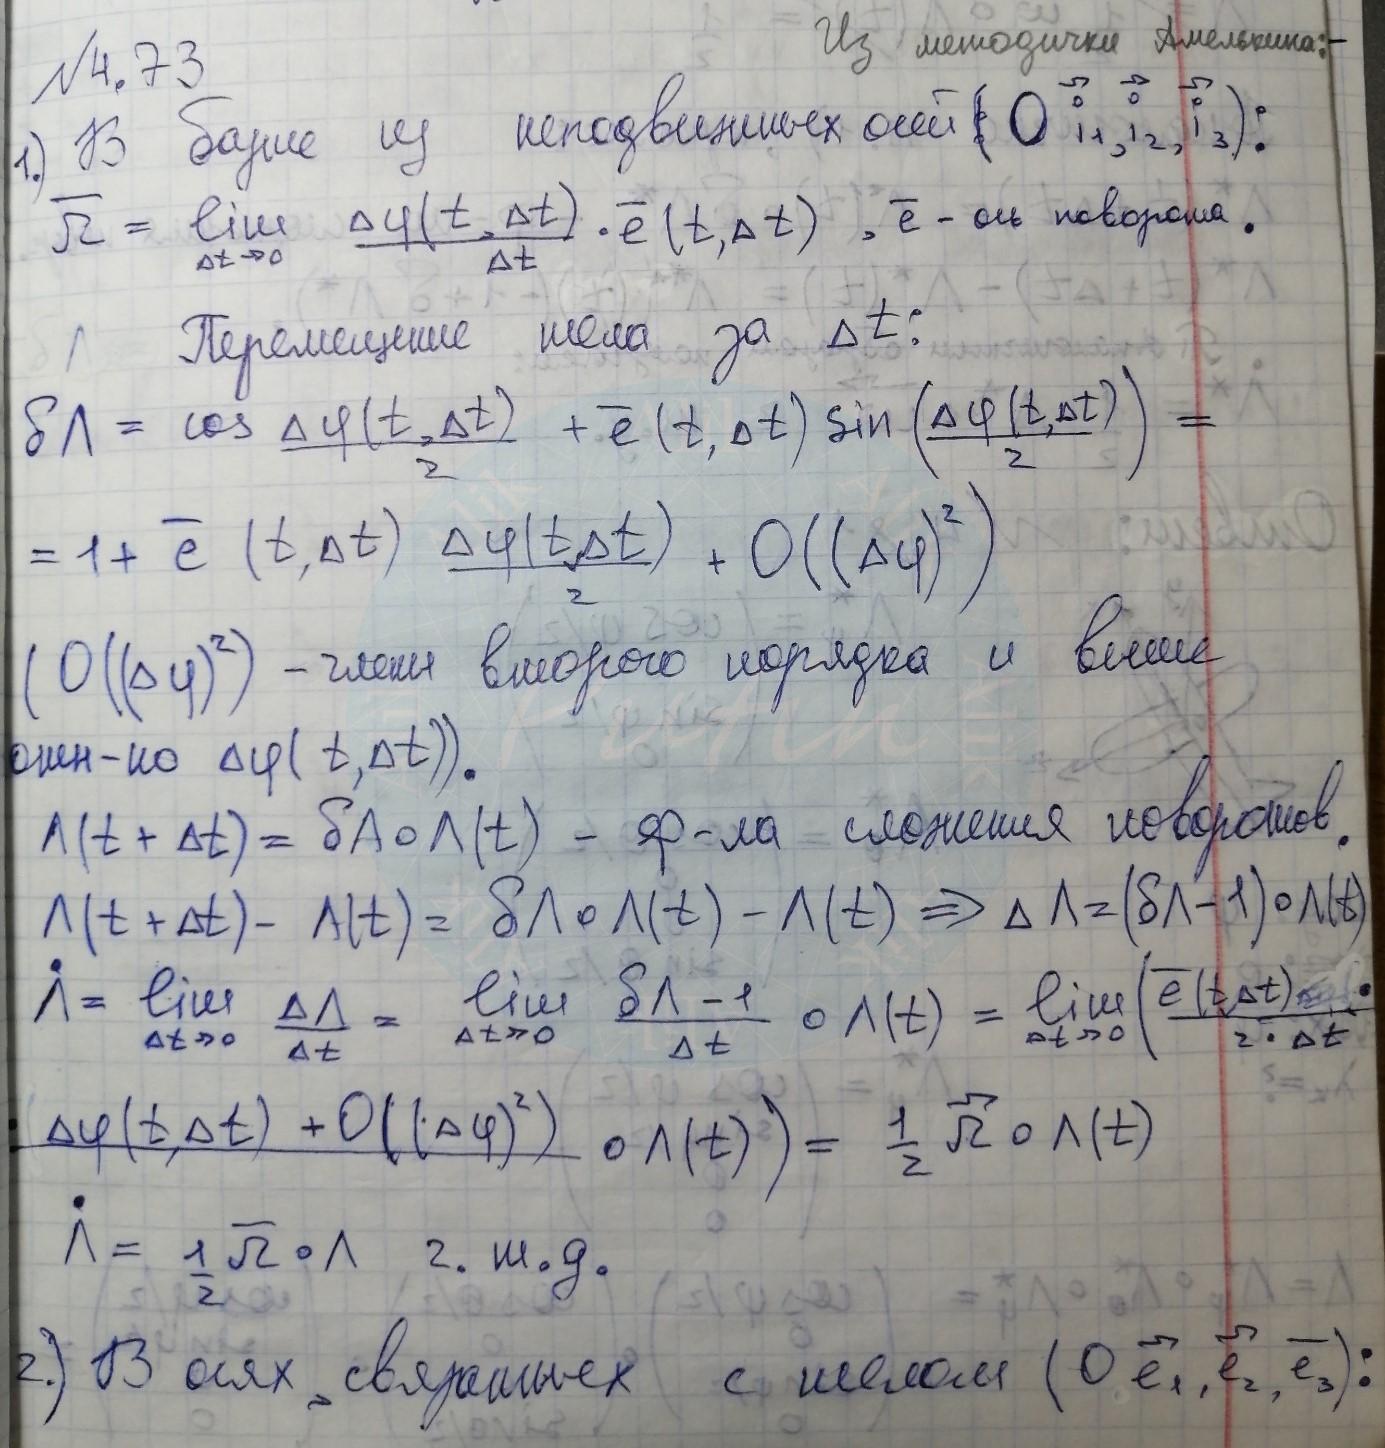 Из методички Амелькина:-
№4.73
1.) В базисе из неподвижных осей (O i₁⁰, i₂⁰, i₃⁰):
Ω̅ = lim Δt→0 Δφ(t,Δt)/Δt · e̅(t,Δt), e̅ - ось поворота.
Перемещение тела за Δt:
δΛ = cos Δφ(t,Δt)/2 + e̅(t,Δt) sin(Δφ(t,Δt)/2) =
= 1 + e̅ (t,Δt) Δφ(t,Δt)/2 + O((Δφ)²)
(O((Δφ)²) - члены второго порядка и выше
отн-но Δφ(t,Δt)).
Λ(t+Δt) = δΛ∘Λ(t) - ф-ла сложения поворотов.
Λ(t+Δt) - Λ(t) = δΛ∘Λ(t) - Λ(t) => ΔΛ = (δΛ-1)∘Λ(t)
Λ̇ = lim Δt→0 ΔΛ/Δt = lim Δt→0 δΛ-1/Δt ∘ Λ(t) = lim Δt→0 (e̅(t,Δt) ·/2·Δt
· Δφ(t,Δt) + O((Δφ)²) ∘ Λ(t)) = 1/2 Ω⃗ ∘ Λ(t)
Λ̇ = 1/2 Ω̅∘Λ ч.т.д.
2.) В осях, связанных с телом (O e⃗₁, e⃗₂, e̅₃):